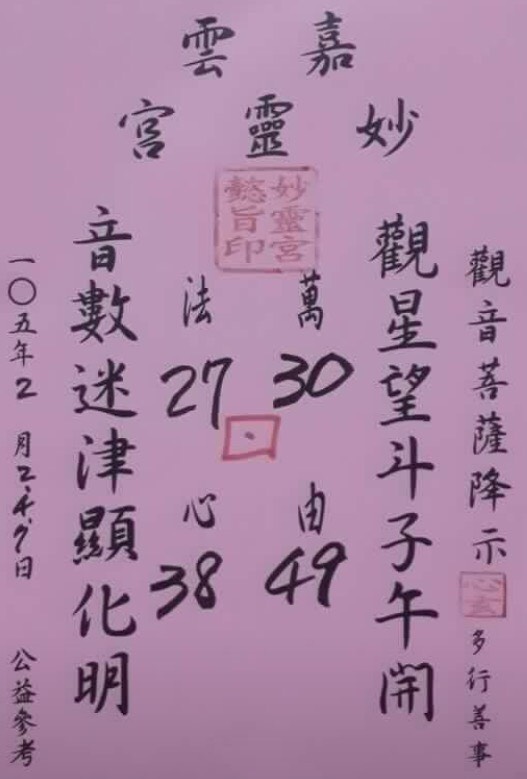 嘉雲
妙靈宮
妙靈宮
懿旨印
觀音菩薩降示
心玄
多行善事
觀星望斗子午開
萬
30
由
49
法
27
心
38
音數迷津顯化明
一〇五年2月2.4.9日
公益參考